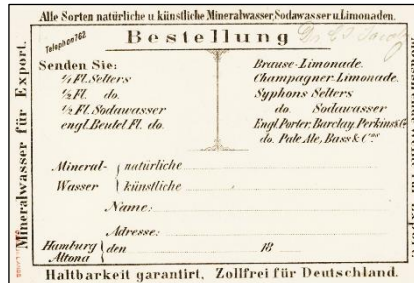 Alle Sorten natürliche u künstliche Mineralwasser, Sodawasser u. Limonaden.
Telephon 762
Bestellung
Mineralwasser für Export.
Senden Sie:
1/1 Fl. Selters
1/2 Fl. do.
1/2 Fl. Sodawasser
engl. Beutel Fl. do.
Brause-Limonade.
Champagner-Limonade.
Syphons Selters
do. Sodawasser
Engl. Porter, Barclay, Perkins & Co
do. Pale Ale, Bass & Cos
Mineral- natürliche
Wasser künstliche
Name:
Adresse:
Hamburg
Altona
den 18
Haltbarkeit garantirt, Zollfrei für Deutschland.